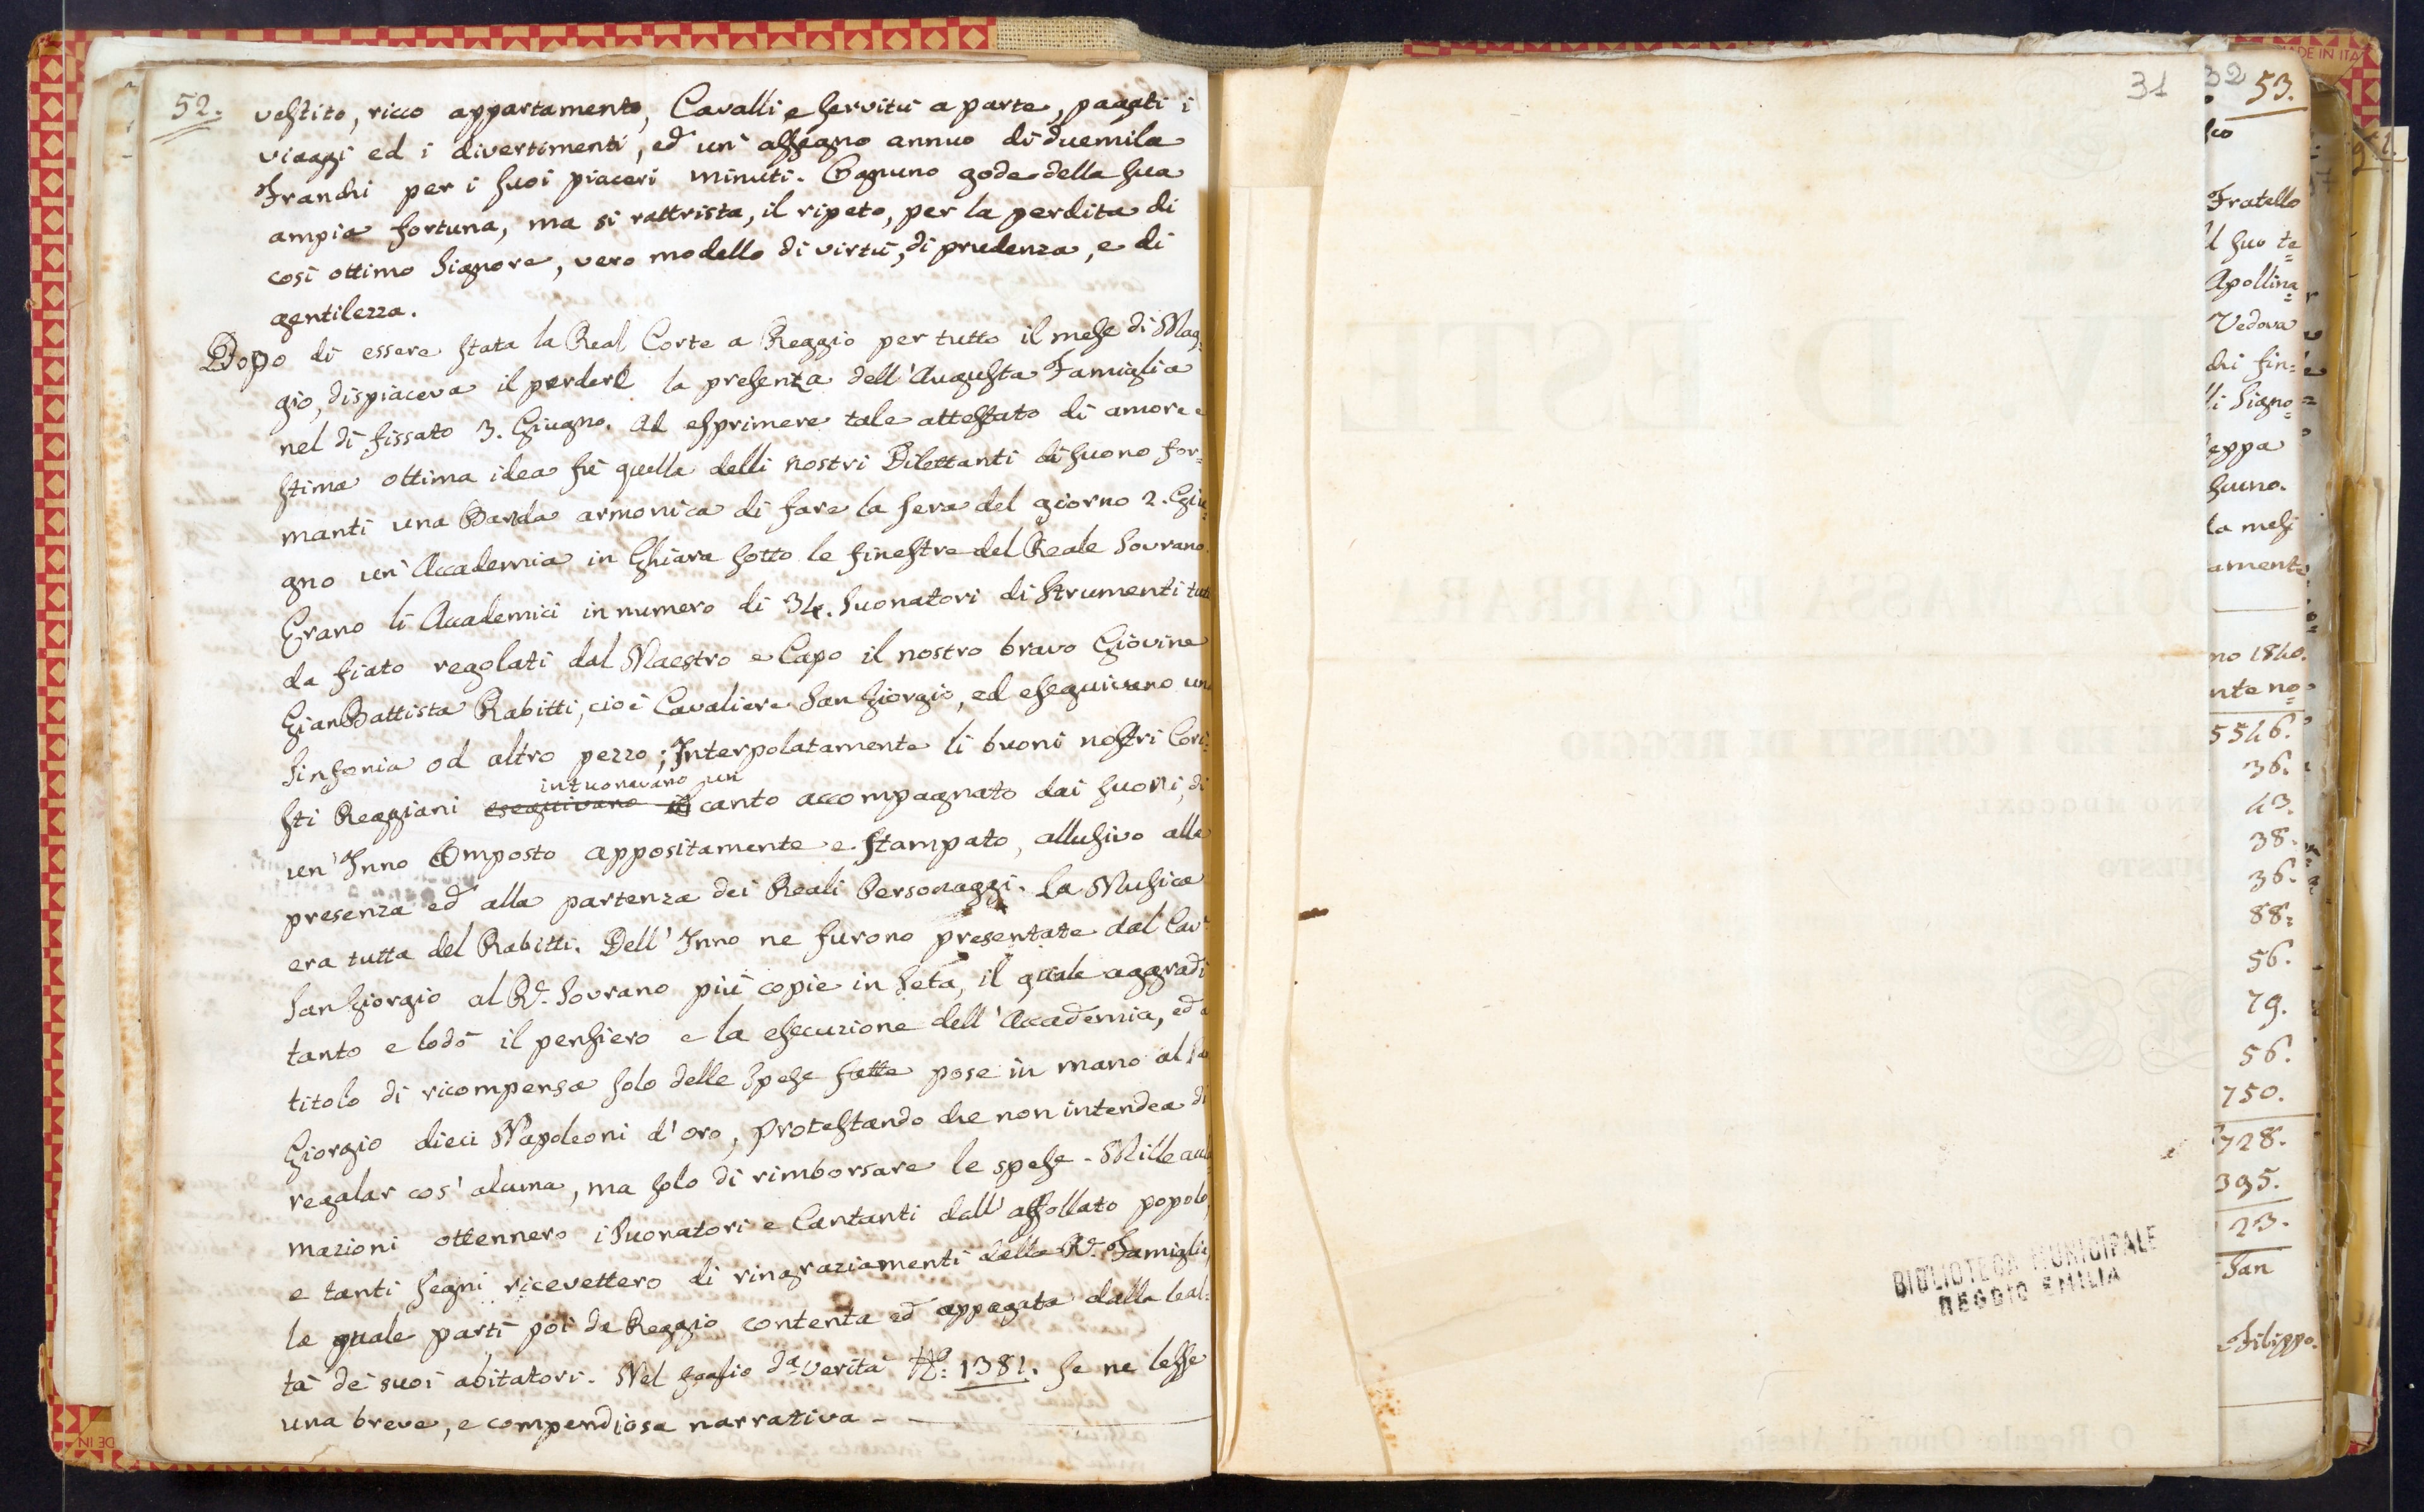 52.
vestito, ricco appartamento, Cavalli e servitù a parte, pagati i
viaggi ed i divertimenti, ed un' assegno annuo di duemila
Franchi per i suoi piaceri minuti. Ognuno gode della sua
ampia fortuna, ma si rattrista, il ripeto, per la perdita di
così ottimo Signore, vero modello di virtù, di prudenza, e di
gentilezza.
Dopo di essere stata la Real Corte a Reggio per tutto il mese di Mag=
gio, dispiaceva il perdere la presenza dell'Augusta Famiglia
nel dì fissato 3. Giugno. Ad esprimere tale attestato di amore e
stima ottima idea fù quella delli nostri Dilettanti di suono for=
manti una Banda armonica di fare la sera del giorno 2. Giu=
gno un' Accademia in Ghiara sotto le finestre del Reale Sovrano.
Erano li Accademici in numero di 34. Suonatori di Strumenti tutti
da fiato regolati dal Maestro e Capo il nostro bravo Giovine
GianBattista Rabitti, cioè Cavaliere San Giorgio, ed eseguivano una
Sinfonia od altro pezzo; Interpolatamente li buoni nostri Cori=
intuonavano un
sti Reggiani eseguivano il canto accompagnato dai suoni, di
un' Inno composto appositamente e stampato, allusivo alla
presenza ed alla partenza dei Reali Personaggi. La Musica
era tutta del Rabitti. Dell'Inno ne furono presentate dal Cav.
San Giorgio al R. Sovrano più copie in seta, il quale aggradì
tanto e lodò il pensiero e la esecuzione dell'Accademia, ed a
titolo di ricompensa solo delle spese fatte pose in mano al San
Giorgio dieci Napoleoni d'oro, protestando che non intendea di
regalar cos' alcuna, ma solo di rimborsare le spese. Mille accla=
mazioni ottennero i Suonatori e Cantanti dall' affollato popolo,
e tanti segni ricevettero di ringraziamenti dalla R. Famiglia,
la quale partì poi da Reggio contenta ed appagata dalla leal=
tà de' suoi abitatori. Nel foglio da Verità N.° 1381. se ne lesse
una breve, e compendiosa narrativa.
31
BIBLIOTECA MUNICIPALE
REGGIO EMILIA
32
53.
Fratello
il suo te=
Apollina=
Vedova
chi fin=
li Signo=
eppa
suno.
ta mesi
amente
no 1840.
nte no=
5546.
36.
43.
38.
36.
88.
56.
79.
56.
750.
728.
395.
23.
San
Filippo.